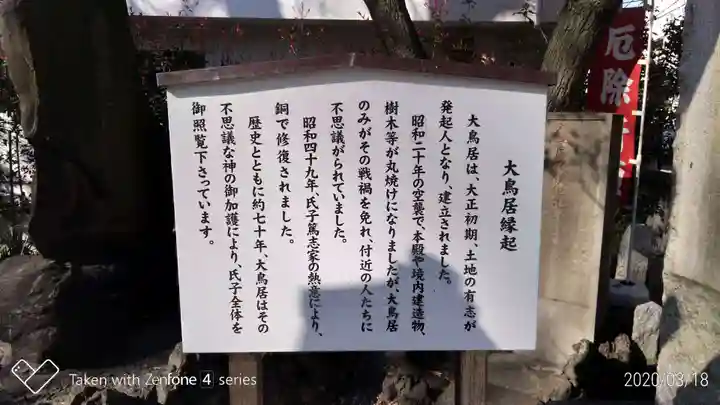 大鳥居縁起
大鳥居は、大正初期、土地の有志が
発起人となり、建立されました。
昭和二十年の空襲で、本殿や境内建造物、
樹木等が丸焼けになりましたが、大鳥居
のみがその戦禍を免れ、付近の人たちに
不思議がられていました。
昭和四十九年、氏子篤志家の熱意により、
銅で修復されました。
歴史とともに約七十年、大鳥居はその
不思議な神の御加護により、氏子全体を
御照覧下さっています。
厄除
Taken with Zenfone 4 series
2020/03/18